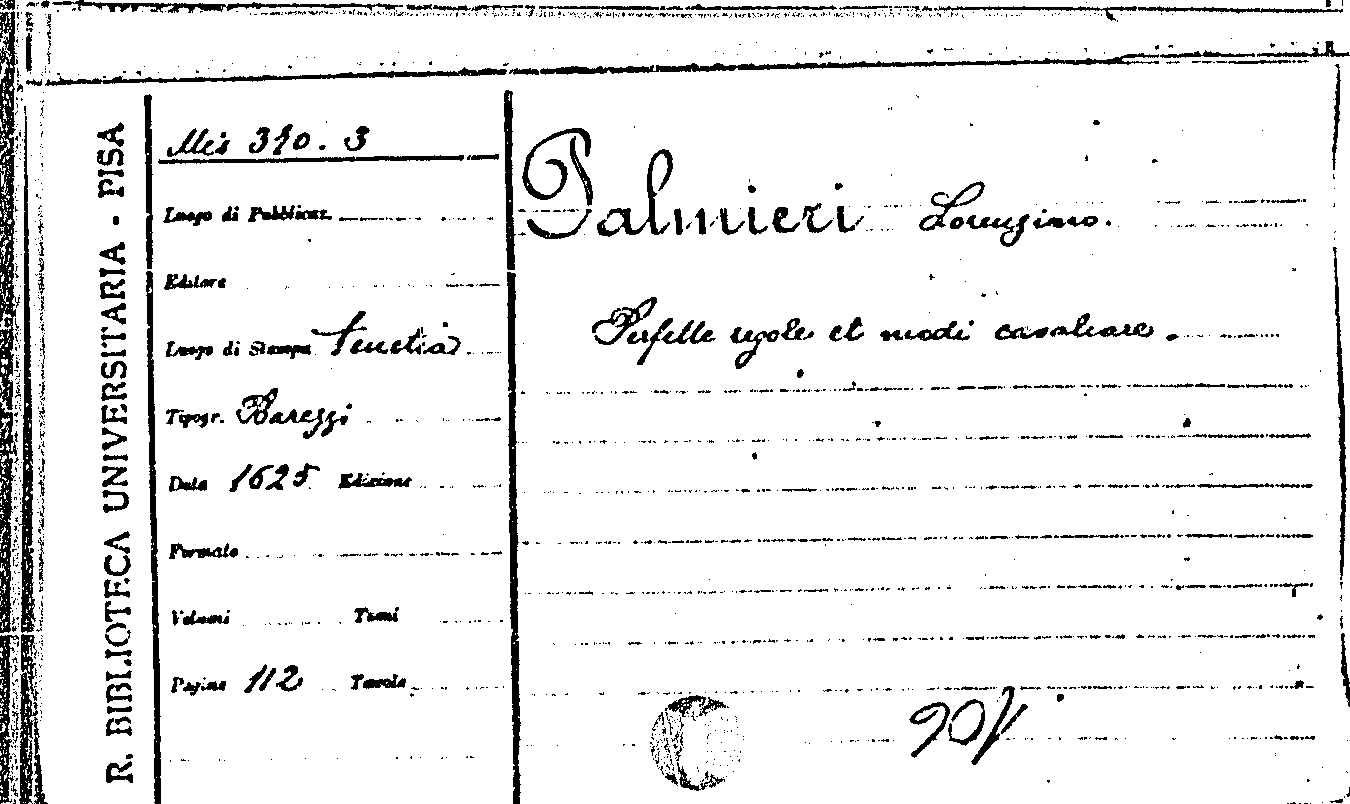 R. BIBLIOTECA UNIVERSITARIA - PISA
Mis 310. 3
Luogo di Pubblicaz.
Editore
Luogo di Stampa Venetia
Tipogr. Barezzi
Data 1625 Edizione
Formato
Volumi Tomi
Pagine 112 Tavole
Palmieri Lorenzino.
Perfette regole et modi cavalcare.